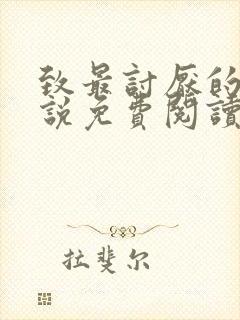 致最討厭的
說免費閱讀
拉斐尔